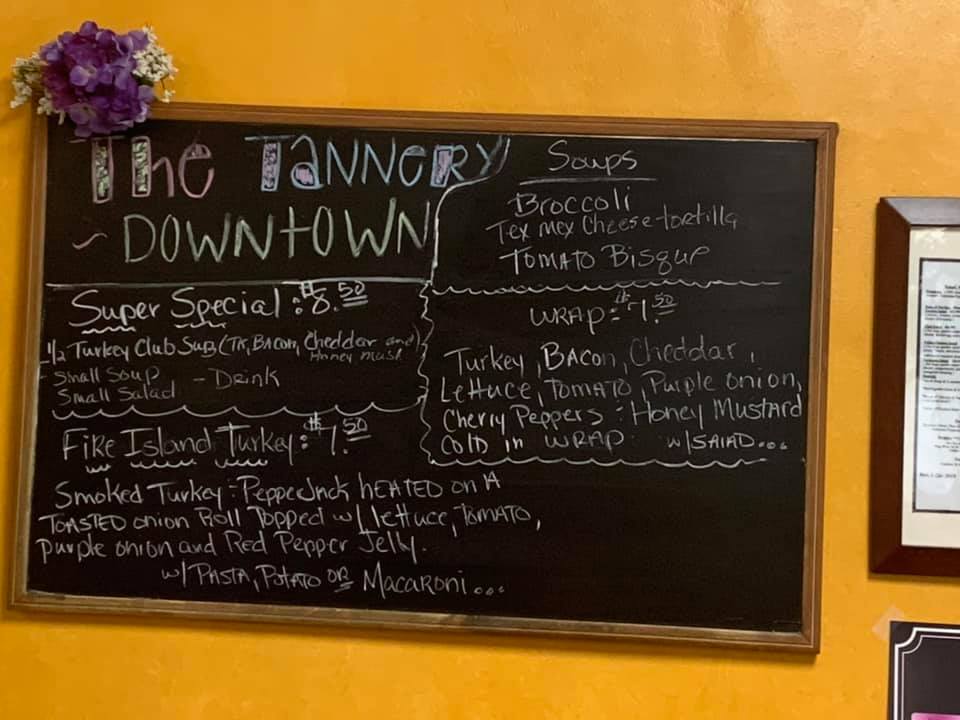 The Tannery
~ Downtown
Super Special: $8.50
1/2 Turkey Club Sub (TK, Bacon, Cheddar and
Honey Must)
Small Soup
Small Salad - Drink
Fire Island Turkey: $7.50
Smoked Turkey : PepperJack heated on A
Toasted onion Roll Topped w/ lettuce, Tomato,
purple onion and Red Pepper Jelly.
w/ Pasta, Potato or Macaroni...
Soups
Broccoli
Tex mex Cheese tortilla
Tomato Bisque
Wrap: $7.50
Turkey, Bacon, Cheddar,
Lettuce, Tomato, Purple onion,
Cherry Peppers : Honey Mustard
Cold in wrap. w/ Salad...